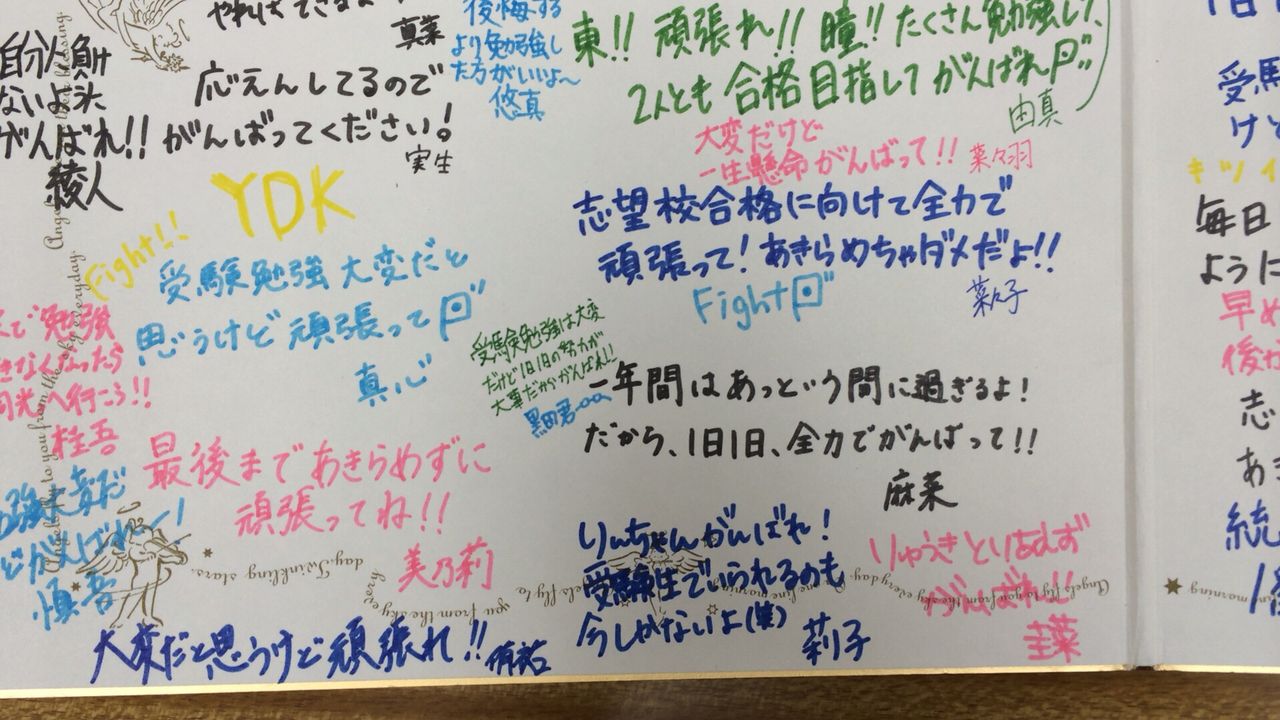 真菜
自分に負け
ないよう
がんばれ!!
綾人
応えんしてるので
がんばってください!
実生
後悔する
より勉強し
た方がいいよ〜
悠真
東!! 頑張れ!! 瞳!! たくさん勉強して、
2人とも 合格目指して がんばれ
由真
大変だけど
一生懸命がんばって!! 菜々羽
YDK
Fight!!
志望校合格に向けて全力で
頑張って! あきらめちゃダメだよ!!
Fight
菜々子
受験勉強 大変だと
思うけど 頑張って
真心
受験勉強は大変
だけど1日1日の努力が
大事だからがんばれ!!
勉強
きなくなったら
へ行こう!!
桂吾
一年間はあっという間に過ぎるよ!
だから、1日1日、全力でがんばって!!
麻菜
最後まであきらめずに
頑張ってね!!
美乃莉
強大変だ
どがんばれ〜!
慎吾
りんちゃんがんばれ!
受験生でいられるのも
今しかないよ(笑)
莉子
りゅうきとりあえず
がんばれ!!
圭菜
大変だと思うけど頑張れ!! 侑祐
受験
けど
キツイ
毎日
ように
早め
後が
志
続
Angels fly to you from the sky everyday.
day. Twinkling stars.